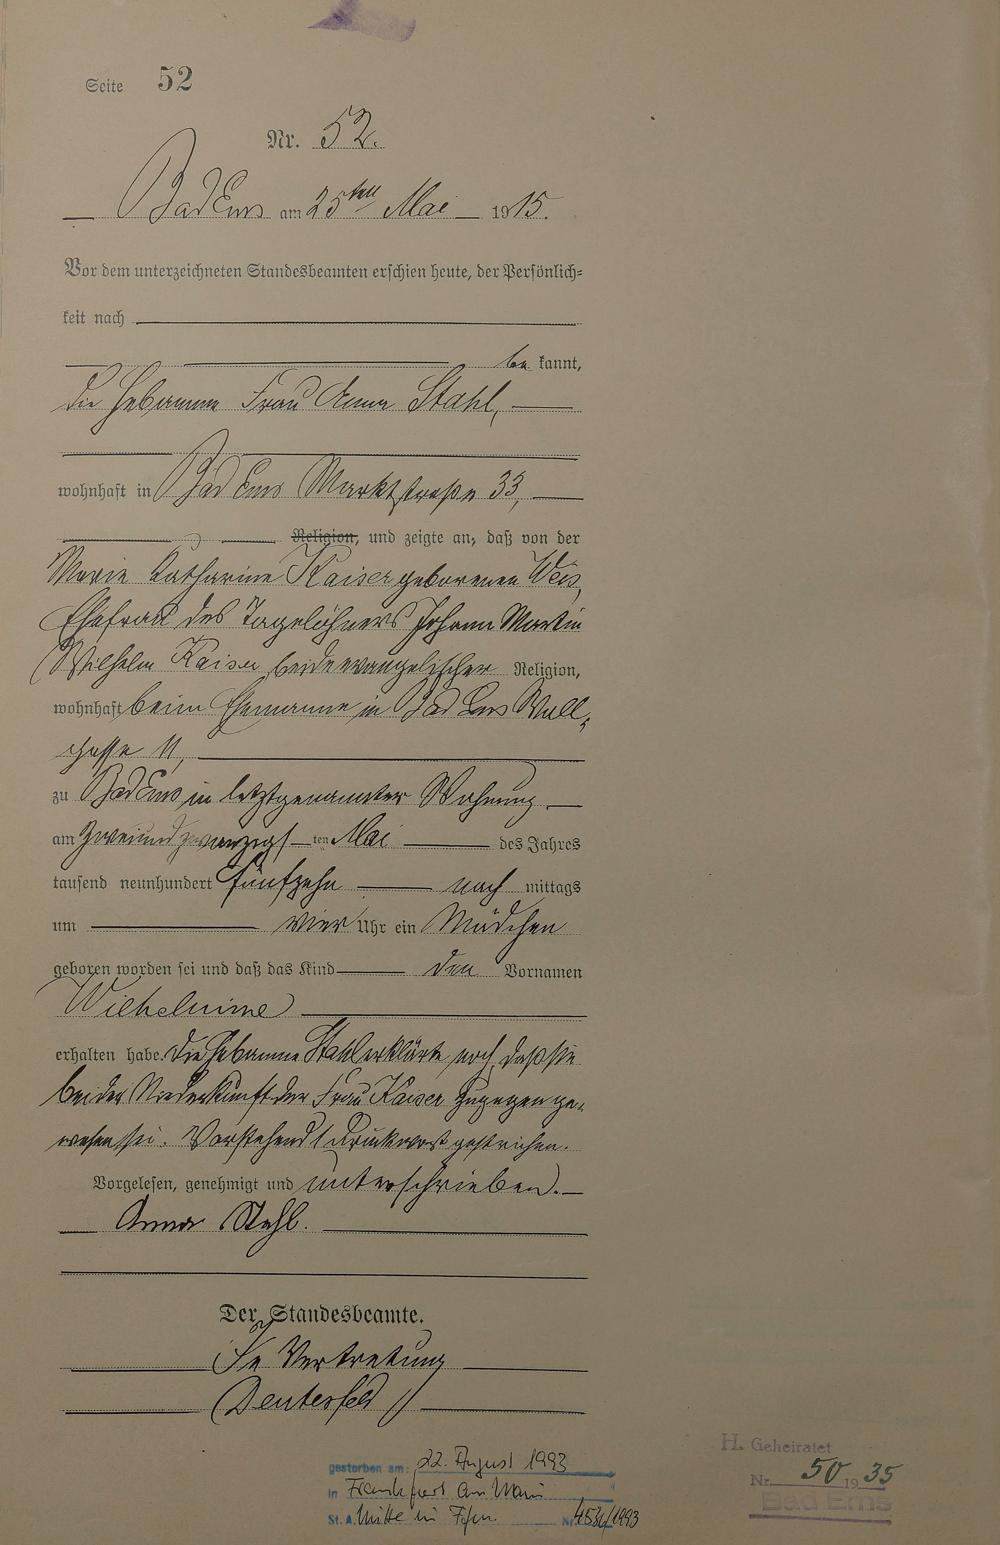 Seite 52
Nr. 52.
Bad Ems am 25ten Mai 1915.
Vor dem unterzeichneten Standesbeamten erschien heute, der Persönlich-
keit nach
be kannt,
die Hebamme Frau Anna Stahl,
wohnhaft in Bad Ems Marktstraße 33,
Religion, und zeigte an, daß von der
Marie Katharine Kaiser geborenen Weis,
Ehefrau des Tagelöhners Johann Martin
Wilhelm Kaiser, beide evangelischer Religion,
wohnhaft beim Ehemanne in Bad Ems Wall-
gasse 11,
zu Bad Ems, in letztgenannter Wohnung
am zweiundzwanzigsten Mai des Jahres
tausend neunhundert fünfzehn nach mittags
um vier Uhr ein Mädchen
geboren worden sei und daß das Kind den Vornamen
Wilhelmine
erhalten habe. Die Hebamme Stahl erklärte noch, daß sie
bei der Niederkunft der Frau Kaiser zugegen ge-
wesen sei. Vorstehend 1 Druckwort gestrichen.
Vorgelesen, genehmigt und unterschrieben.
Anna Stahl.
Der Standesbeamte.
In Vertretung
gestorben am: 22. August 1993
in Frankfurt am Main
St. A. Mitte in Ffm. Nr. /1993
H. Geheiratet
Nr. 50 1935
Bad Ems